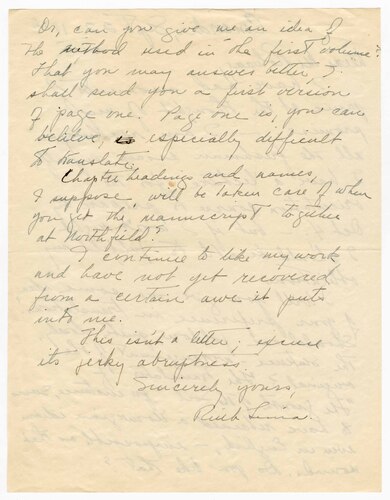 Or, can you give me an idea of
the method used in the first volume?
That you may answer better, I
shall send you a first version
of page one. Page one is, you can
believe, is especially difficult
to translate.
Chapter headings and names,
I suppose, will be taken care of when
you get the manuscript together
at Northfield?
I continue to like my work
and have not yet recovered
from a certain awe it puts
into me.
This isn't a letter; excuse
its jerky abruptness.
Sincerely yours,
Ruth